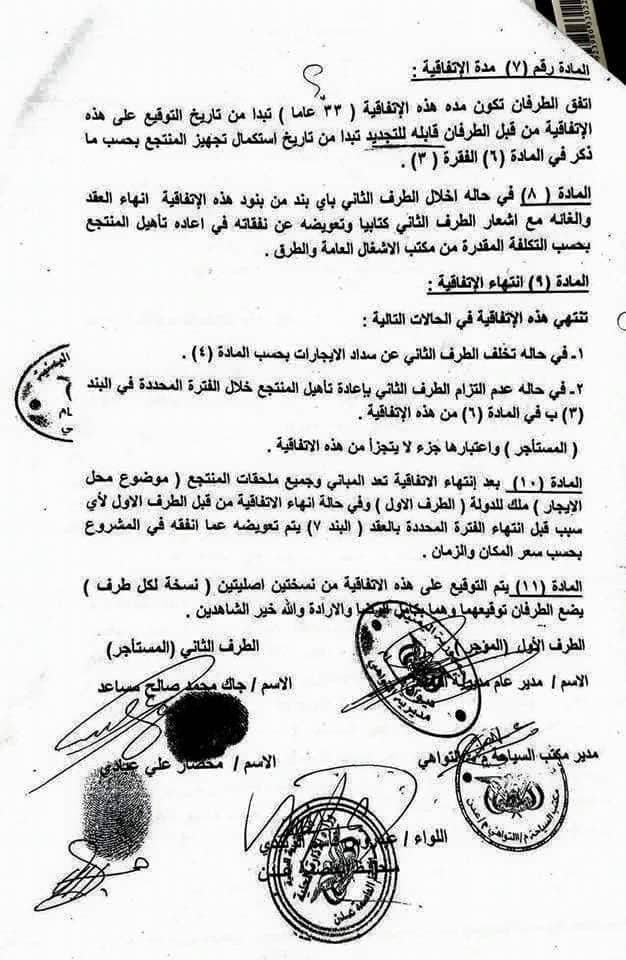 المادة رقم (٧) مدة الإتفاقية :
اتفق الطرفان تكون مده هذه الإتفاقية ( ٣٣ عاما ) تبدا من تاريخ التوقيع على هذه
الإتفاقية من قبل الطرفان قابله للتجديد تبدا من تاريخ استكمال تجهيز المنتجع بحسب ما
ذكر في المادة (٦) الفقرة (٣) .
المادة ( ٨) في حاله اخلال الطرف الثاني باي بند من بنود هذه الإتفاقية انهاء العقد
والغائه مع اشعار الطرف الثاني كتابيا وتعويضه عن نفقاته في اعاده تأهيل المنتجع
بحسب التكلفة المقدرة من مكتب الاشغال العامة والطرق .
المادة (٩) انتهاء الإتفاقية :
تنتهي هذه الإتفاقية في الحالات التالية :
١- في حاله تخلف الطرف الثاني عن سداد الايجارات بحسب المادة (٤) .
٢- في حاله عدم التزام الطرف الثاني بإعادة تأهيل المنتجع خلال الفترة المحددة في البند
(٣) ب في المادة (٦) من هذه الإتفاقية .
( المستأجر ) واعتبارها جزء لا يتجزأ من هذه الاتفاقية .
المادة (١٠) بعد إنتهاء الاتفاقية تعد المباني وجميع ملحقات المنتجع ( موضوع محل
الإيجار ) ملك للدولة ( الطرف الاول ) وفي حالة انهاء الاتفاقية من قبل الطرف الاول لأي
سبب قبل انتهاء الفترة المحددة بالعقد ( البند ٧) يتم تعويضه عما انفقه في المشروع
بحسب سعر المكان والزمان .
المادة (١١) يتم التوقيع على هذه الاتفاقية من نسختين اصليتين ( نسخة لكل طرف )
يضع الطرفان توقيعهما وهما بكامل الرضا والارادة والله خير الشاهدين .
الطرف الأول (المؤجر)
الطرف الثاني (المستأجر)
الاسم / مدير عام مديرية
الاسم / جاك محمد صالح مساعد
مدير مكتب السياحة التواهي
الاسم / محضار علي عبادي
اللواء /